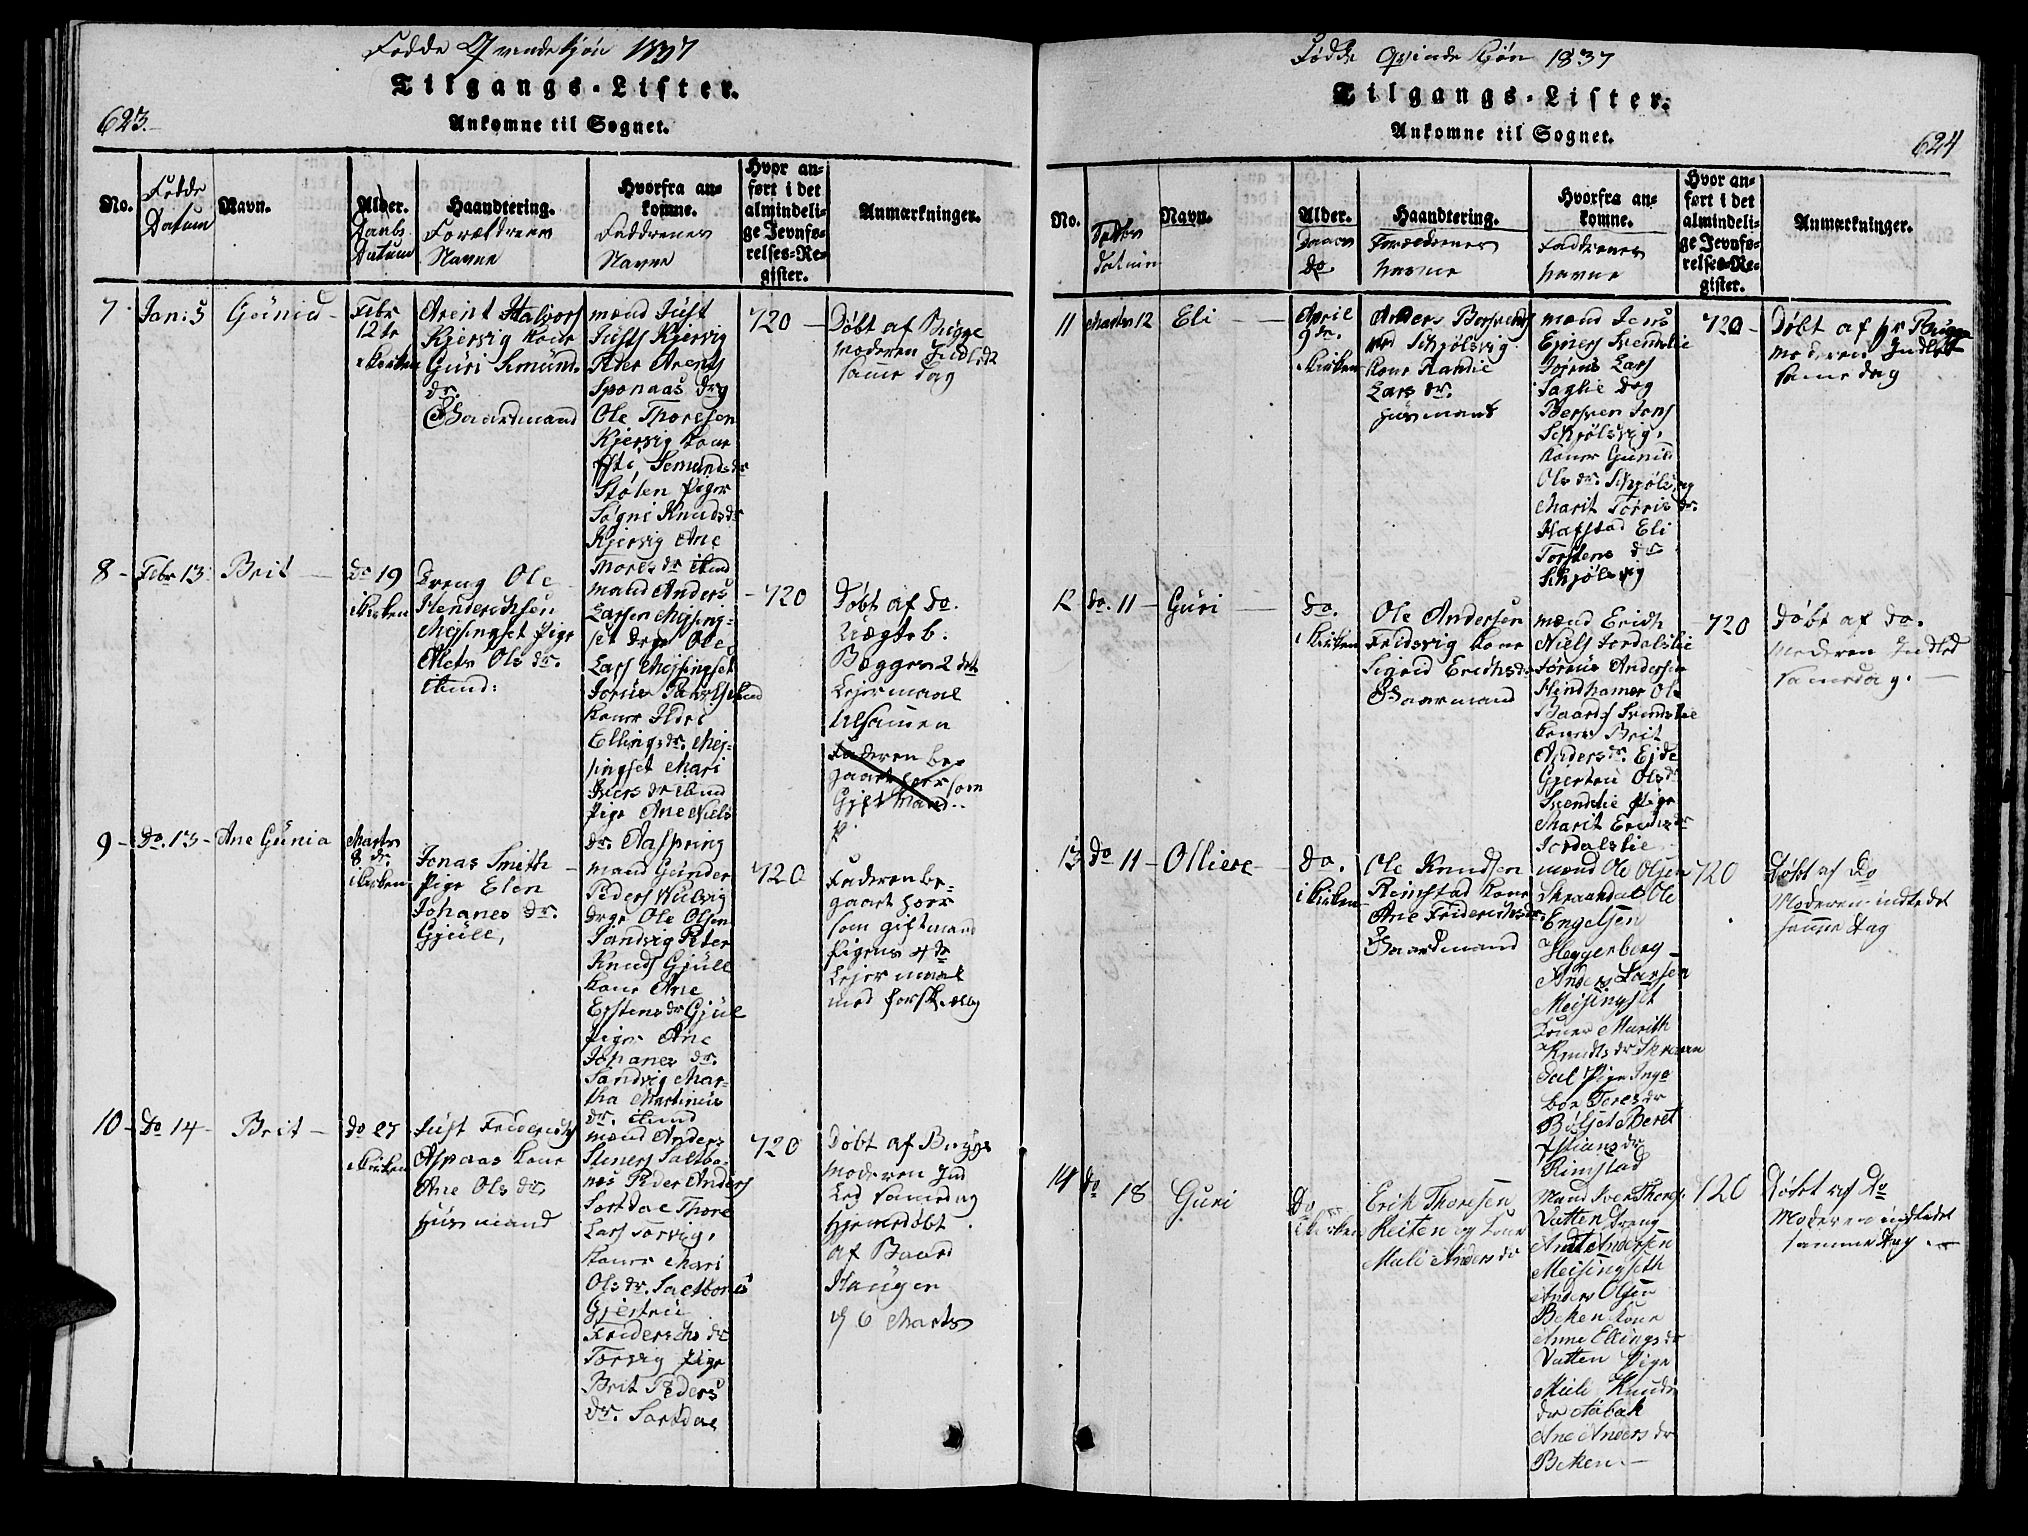 Fødde Qvendekjøn 1837
Tilgangs-Lister.
623.
Ankomne til Sognet.
No.
Fødde
Datum
Navn.
Alder.
Daabs
Datum
Haandtering.
Forældrenes
Navne
Hvorfra an-
komne.
Faddrenes
Navne
Hvor an-
ført i det
almindeli-
ge Jevnfø-
relses-Re-
gister.
Anmærkninger.
7
Jan: 5
Gunild
Febr
12te
i Kirken
Arent Halvors
Kjersvig kone
Guri Semund
dr.
Gaardmand
mænd Just
Justs Kjersvig
Peder Arents
Sponaas Drg
Ole Thoresen
Kjersvig kone
Semundsdr
Stølen Piger
Søgni Knudsdr
Kjersvig Ane
Thoresdr
720
Døbt af Bugge
Moderen Indledt
samme Dag
8
Febr 13
Brit
Do 19
i Kirken
Dreng Ole
Henderichsen
Meisingset Pige
Mets Ols dr.
mænd Anders
Larsen Meising-
set drge Ole
Lars Meisingset
koner Ildri
Ellingsdr. Mei-
singset Mari
Ivers dr
Pige Ane Niels
dr. Aaspring
720
Døbt af do.
Uægte b.
Begges 2det
Leiermaal
tilsammen
Faderen be-
gaaet horr som
Gift Mand
9
Do. 13
Ane Gunia
Marts
8 dr.
i Kirken
Jonas Smith
Pige Elen
Johanes dr.
Gjüll,
mænd Gunder
Peders
drge Ole Olsen
Sandvig Peter
Knuds Gjüll
kone Ane
Estens dr Gjül
Piger Ane
Johanes dr.
Sandvig Mar-
tha Martinus
dr.
720
Faderen be-
gaaet horr
som giftmand
Pigens 4de
Leiermaal
med forsk.
10
Do 14
Brit
Do 27
i Kirken
Just Friderichs
Aspaas kone
Ane Ols dr.
Husmand
mænd Anders
Steners Saltbo-
næs Peder Anders
Sortdal Thore
Lars Torvig,
kone Mari
Ols dr. Saltbonæs
Gjertru
Friderichs dr
Torvig Pige
Brit Peders
dr. Sortdal
720
Døbt af Bugge
Moderen Ind
Led samme dag
hjemedøbt
af Baard
Haugen
d 6 Marts
Fødde Qvinde Kjøn 1837
Tilgangs-Lister.
Ankomne til Sognet.
624
No.
Fødde
datum
Navn.
Alder.
Daabs
do
Haandtering.
Forældrenes
navne
Hvorfra an-
komne.
Faddrenes
navne
Hvor an-
ført i det
almindeli-
ge Jevnfø-
relses-Re-
gister.
Anmærkninger.
11
Marts 12
Eli
April
9 dr.
i Kirken
Anders Bersvends
Skjølsvig
kone Randie
Lars dr.
Husmand
mænd Jens
Einers Svendslie
Jørens Lars
Saglie Drg
Bersven Jons
Skjølsvig,
koner Gunild
Ols dr. Skjølsvig
Marit Torris dr.
Hafstad Eli
Torstens dr
Skjølsvig
720
Døbt af hr Bugge
Moderen Indledt
samme dag
12
do. 11
Guri
do.
i Kirken
Ole Andersen
Fridsvig kone
Sigrid Erichsdr
Gaarmand
mænd Erich
Niels Jordalslie
Jørens Andersen
Hindhamer Ole
Baards Svendslie
koner Brit
Andersdr. Eide
Gjertru Olsdr
Svendslie Pige
Marit Erichsdr
Jordalslie
720
Døbt af do.
Moderen Indled
samedag.
13
do 11
Olliere
do.
i Kirken
Ole Knudsen
Reinstad kone
Ane Friderichsdr
Gaardmand
mænd Ole Olsen
Skraardal Ole
Engelsen
Heggerberg
Anders Larsen
Meisingset
koner Marith
Knudts dr Skraar
dal Pige Inge
bor Toresdr
Bølset Beret
dr
Rimstad
720
Døbt af Do
Moderen indledt
samme Dag
14
do 18
Guri
Do
i Kirken
Erik Thoresen
Reiten og kone
Mali Andersdr
Mænd Iver Thores
Vatten Dreng
Andersen
Meisingseth
Anders Olsen
Beken kone
Anne Ellingsdr
Vatten Pige
Mali Knuds
dr Aabak
Ane Andersdr
Beken
720
Døbt af Do
Moderen indledet
samme Dag